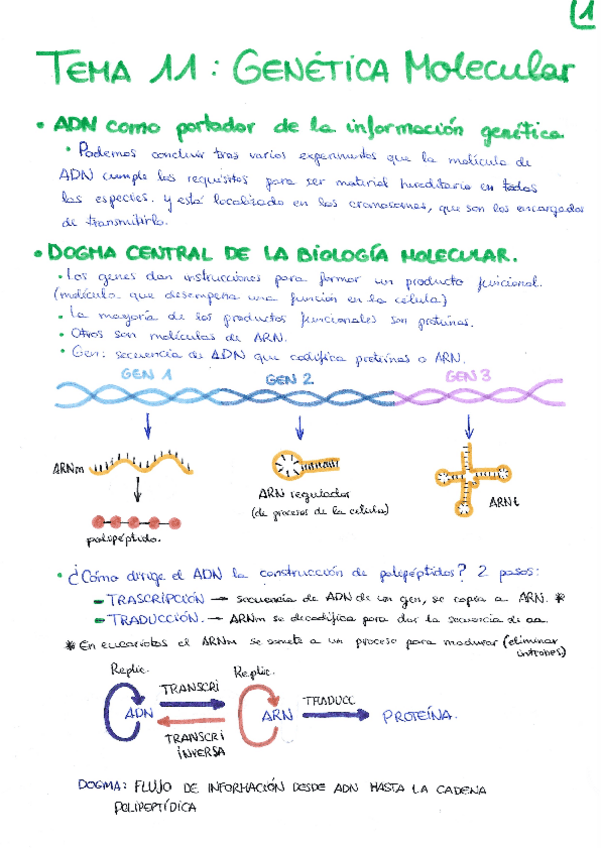 1
TEMA 11: GENÉTICA Molecular
• ADN como portador de la información genética
• Podemos concluir tras varios experimentos que la molécula de
ADN cumple los requisitos para ser material hereditario en todas
las especies. y está localizado en los cromosomas, que son los encargados
de transmitirlo.
• DOGMA CENTRAL DE LA BIOLOGÍA MOLECULAR.
• Los genes dan instrucciones para formar un producto funcional.
(molécula que desempeña una función en la célula)
• La mayoría de los productos funcionales son proteínas.
• Otros son moléculas de ARN.
• Gen: secuencia de ADN que codifica proteínas o ARN.
GEN 1 GEN 2 GEN 3
ARNm
ARN regulador
(de procesos de la célula)
ARNt
polipéptido.
• ¿Cómo dirige el ADN la construcción de polipéptidos? 2 pasos:
- TRASCRIPCIÓN → secuencia de ADN de un gen, se copia a ARN. *
- TRADUCCIÓN. → ARNm se decodifica para dar la secuencia de aa.
* En eucariotas el ARNm se somete a un proceso para madurar (eliminar
intrones)
Replic. Replic.
TRANSCRI
ADN ARN TRADUCC PROTEÍNA.
TRANSCRI
INVERSA
DOGMA: FLUJO DE INFORMACIÓN DESDE ADN HASTA LA CADENA
POLIPEPTÍDICA